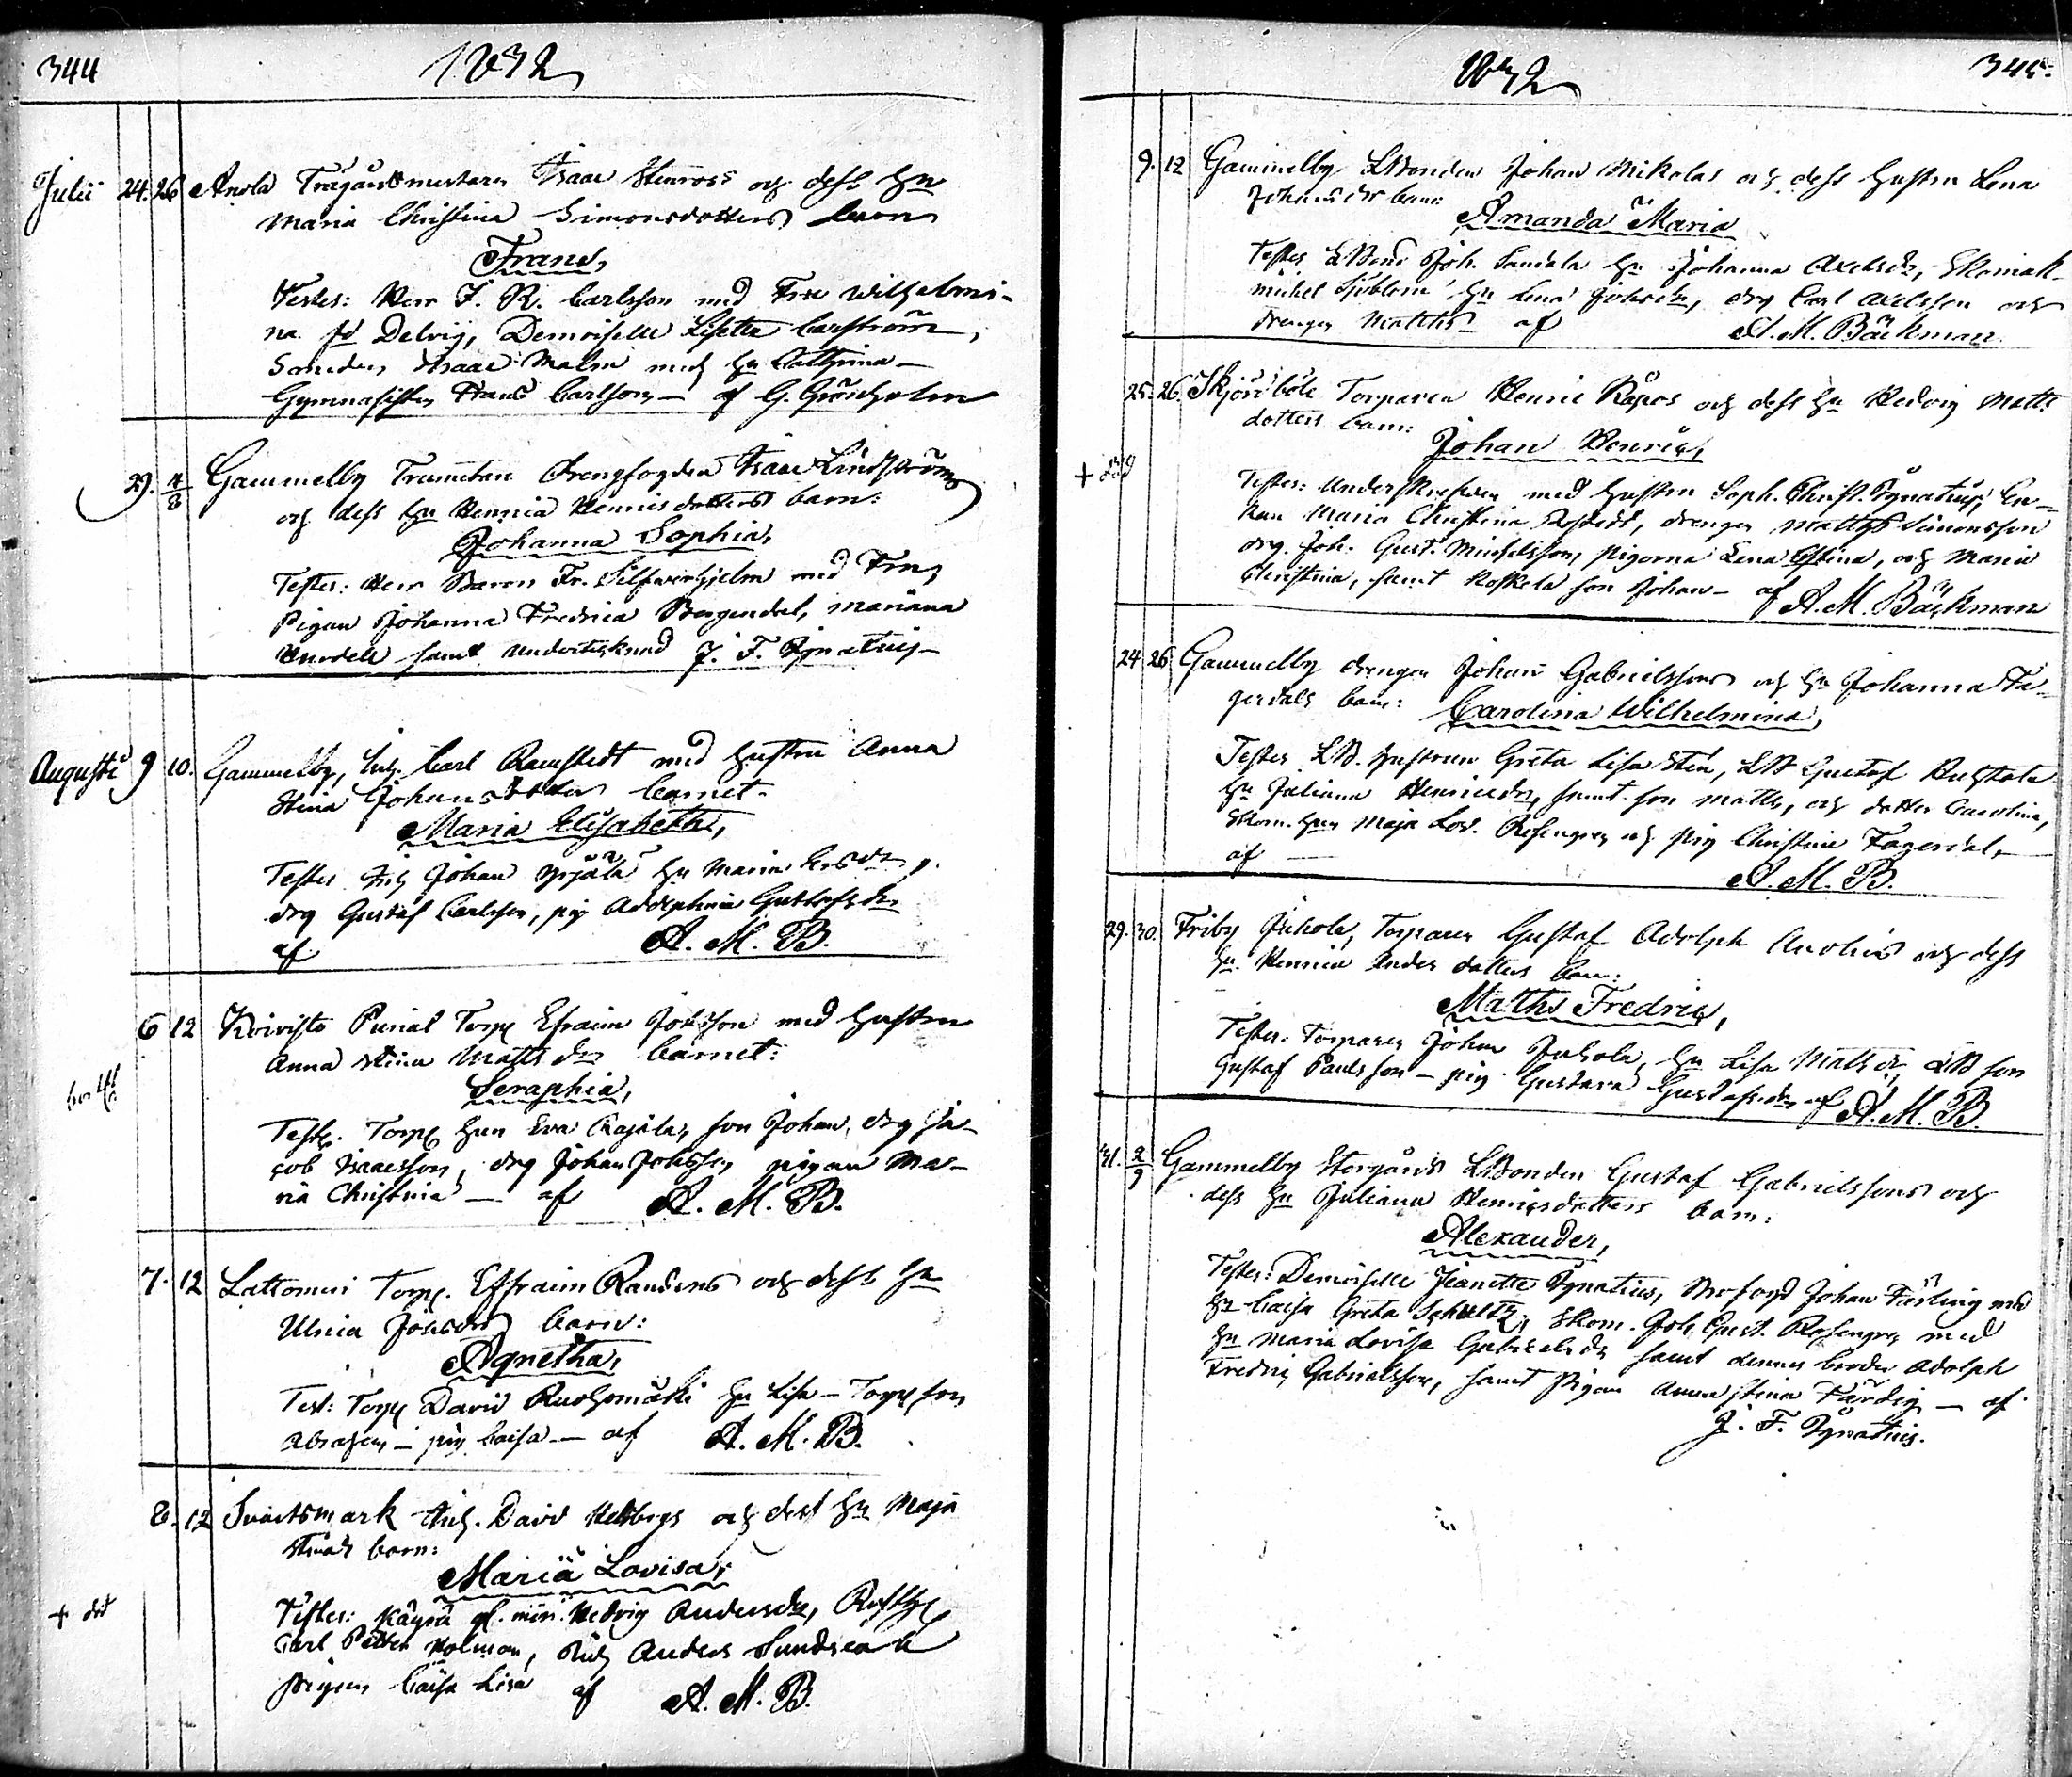 344 1832
Julii 24. 26 Anola Trägårdsmestaren Isaac Stenroos och dess Hu
Maria Christina Simonsdotters barn
Frans,
Testes: Herr F. R. Carlsson med Fru Wilhelmi-
na fd Delvig, Demoiselle Lisette Carström,
Smeden Isaac Malm med Hu Cathrina
Gymnasisten Frans Carlsson — af G. Grönholm
29. 4/8 Gammelby Drengfogden Isaac Lindström
och dess Hu Henrica Henricsdotters barn:
Johanna Sophia,
Testes: Herr Baron Fr. Silfwerhjelm med Fru,
Pigan Johanna Fredrica Bergendal, Mariana
samt undertecknad J. F. Ignatius
Augusti 9 10. Gammelby, Inh. Carl Ramstedt med hustru Anna
Stina Johansdotters barnet.
Maria Elisabeth,
Testes Inh Johan Hu Maria
drg Gustaf Carlsson, pig Adolphina Gustafsdr
af A. M. B.
6 12 Koivisto Torp Efraim Johsson med hustru
Anna Stina Matts dr barnet:
Seraphia,
Test. Torp hun Eva Cajsa, son Johan, drg Ja-
cob Isaacsson, drg Johan Johsson pigan Ma-
ria Christina — af A. M. B.
7. 12 Lattomeri Torp. Effraim Randens och dess Hu
Ulrica Johsdrs barn:
Agnetha,
Test: Torp David Ruohomäki Hu Lisa — Torp son
Abraham — pig Caisa — af A. M. B.
8. 12 Svartsmark Inh. David Hedbergs och dess Hu Maja
Stinas barn:
Maria Lovisa,
+ död
Testes: Hedvig Andersdr,
Carl Petter Holman, Inh Anders Sundsback
pigan Caisa Lisa af A. M. B.
1832 345.
9. 12 Gammelby LBonden Johan Mikolas och dess hustru Lena
Johansdr barn:
Amanda Maria
Testes LBond Joh. Sandala Hu Johanna Axelsdr, Skomak
Michel Sjöblom Hu Lena Johsdr, drg Carl Axelsson och
drengen Matths af A. M. Bäckman
25. 26. Skjöröböle Torparen Henric Rapos och dess Hu Hedvig Matts
dotters barn:
Johan Henric,
+ död
Testes: Underskrefven med hustru Soph. Christ. Ignatius, En-
kan Maria Christina, drengen Matths Simonsson
drg. Joh. Gust. Michelsson, pigorna Lena Stina, och Maria
Christina, samt Koskela son Johan — af A. M. Bäckman
24 26 Gammelby drengen Johan Gabrielssons och Hu Johanna Fa-
gerdals barn: Carolina Wilhelmina,
Testes LB. hustrun Greta Lisa Sten, LB Gustaf
Hu Juliana Henricsdr, samt son Matts, och dotter Carolina,
Skom. hun Maja Lov. Rosengren och pig Christina Fagerdal,
af — A. M. B.
29. 30. Friby Juhola, Torparen Gustaf Adolph och dess
Hu Henrica Anders dotters barn:
Matths Fredric,
Testes: Torparen Johan Juhola, Hu Lisa Matts dr, LB son
Gustaf Paulsson — pig Gustava Gustafsdr af A. M. B.
31. 2/9 Gammelby Storgårds LBonden Gustaf Gabrielssons och
dess Hu Juliana Henricsdotters barn:
Alexander,
Testes: Demoiselle Jeanette Ignatius, Johan Färling med
Hu Caisa Greta Schultz, Skom. Joh. Gust. Rosengren med
Hu Maria Lovisa Gabrielsdr samt dennes broder Adolph
Fredric Gabrielsson, samt pigan Anna Stina Färdig — af
J. F. Ignatius.